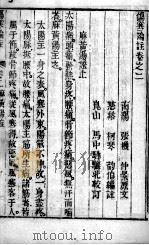 傷寒論注卷之二
南陽 張機 仲景原文
慈谿 柯琴 韵伯編註
崑山 馬中驊驤北較訂
麻黃湯證上
太陽病頭痛發熱身疼腰痛骨節疼痛惡風無汗而喘
者麻黃湯主之
太陽主一身之表風寒外束陽氣不伸故一身盡疼
太陽脈抵腰中故腰痛太陽主筋所生病諸筋者皆
屬於節故骨節疼痛從風寒得故惡風風寒客於人